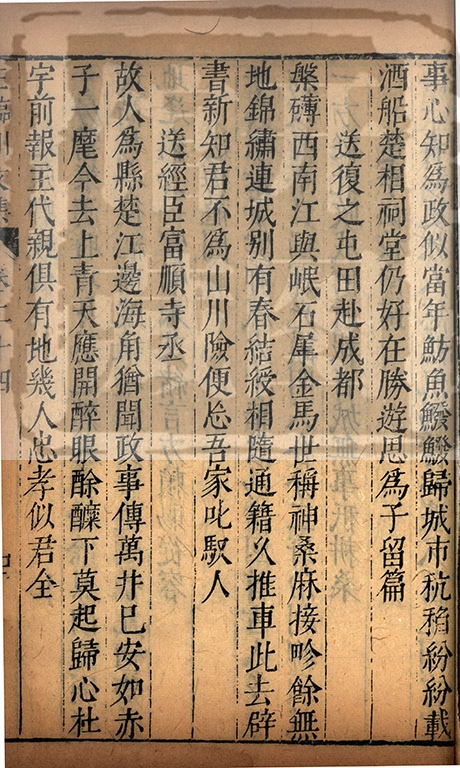 事心知爲政似當年魴魚鱍鱍歸城市秔稻紛紛載
酒船楚相祠堂仍好在勝遊思爲子留篇
送復之屯田赴成都
槃礴西南江與岷石犀金馬世稱神桑麻接畛餘無
地錦繡連城別有春結綬相隨通籍久推車此去辟
書新知君不爲山川險便忘吾家叱馭人
送經臣富順寺丞
故人爲縣楚江邊海角猶聞政事傳萬井已安如赤
子一麾今去上青天應開醉眼酴醾下莫起歸心杜
宇前報主代親俱有地幾人忠孝似君全